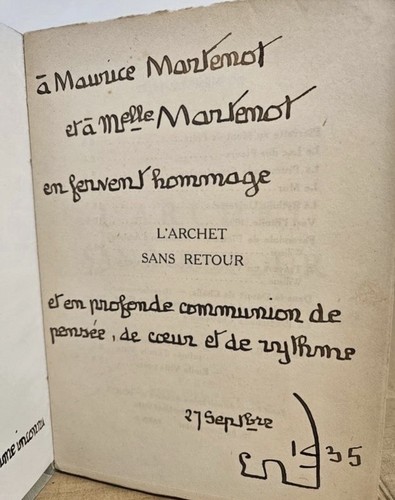 à Maurice Martenot
et à Melle Martenot
en fervent hommage
L'ARCHET
SANS RETOUR
et en profonde communion de
pensée, de cœur et de rythme
27 Septbre
35